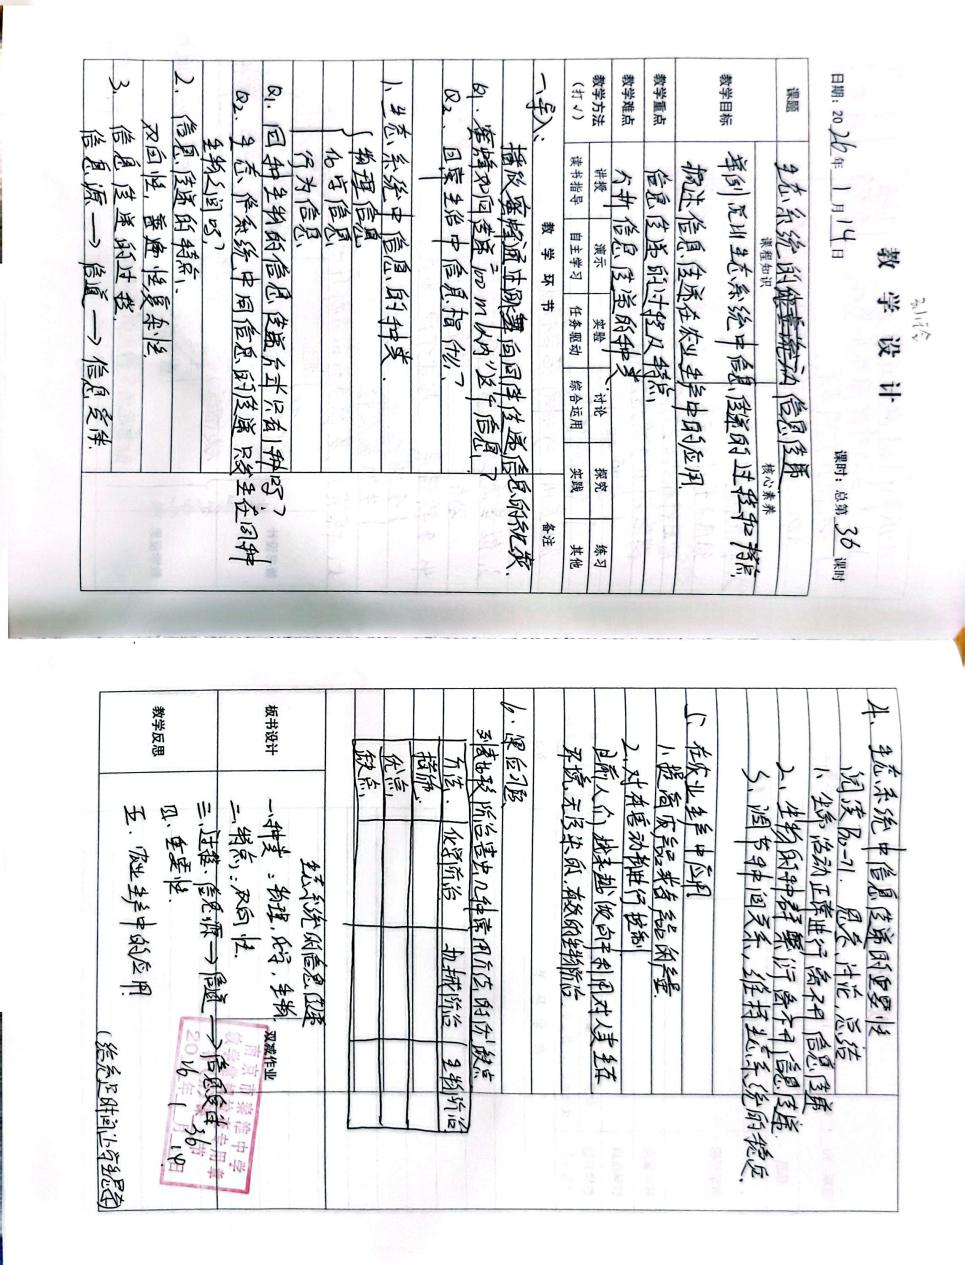 教学设计
日期：2026年1月14日
课时：总第36课时
课题
生态系统的信息传递
教学目标
课程知识
核心素养
举例说明生态系统中信息传递的过程和特点
描述信息传递在农业生产中的应用
教学重点
信息传递的过程及特点
教学难点
分析信息传递的种类
教学方法（打√）
讲授 演示 实验 讨论 探究 练习
读书指导 自主学习 任务驱动 综合运用 实践 其他
教学环节
备注
一、导入：
播放蜜蜂通过跳舞向同伴传递信息的视频．
Q1．蜜蜂如何传递100m以内"这个信息？
Q2．日常生活中信息指什么？
1、生态系统中信息的种类．
物理信息
化学信息
行为信息
Q1．同种生物的信息传递方式只有1种吗？
Q2．生态系统中间信息的传递只发生在同种
生物之间吗？
2．信息传递的特点．
双向性，普遍性复杂性
3．信息传递的过程
信息源→信道→信息受体．
4、生态系统中信息传递的重要性
阅读P70-71．思考讨论，总结
1、生命活动正常进行离不开信息传递
2、生物的种群繁衍离不开信息传递
3、调节种间关系，维持生态系统的稳定．
5、在农业生产中应用
1、提高农产品或者产量
2、对有害动物进行控制
目前人们越来越倾向于利用对人类生存
环境无污染的有效的生物防治
6．课后习题
列表比较防治害虫几种常用方法的优缺点
方法． 化学防治 机械防治 生物防治
措施
优点
缺点
板书设计
生态系统的信息传递
一、种类：物理，化学，生物．
二、特点：双向性．
三、过程：信息源→信道→信息受体
四．重要性．
五．农业生产中的应用．
双减作业
教学反思
36
2026年1月14日